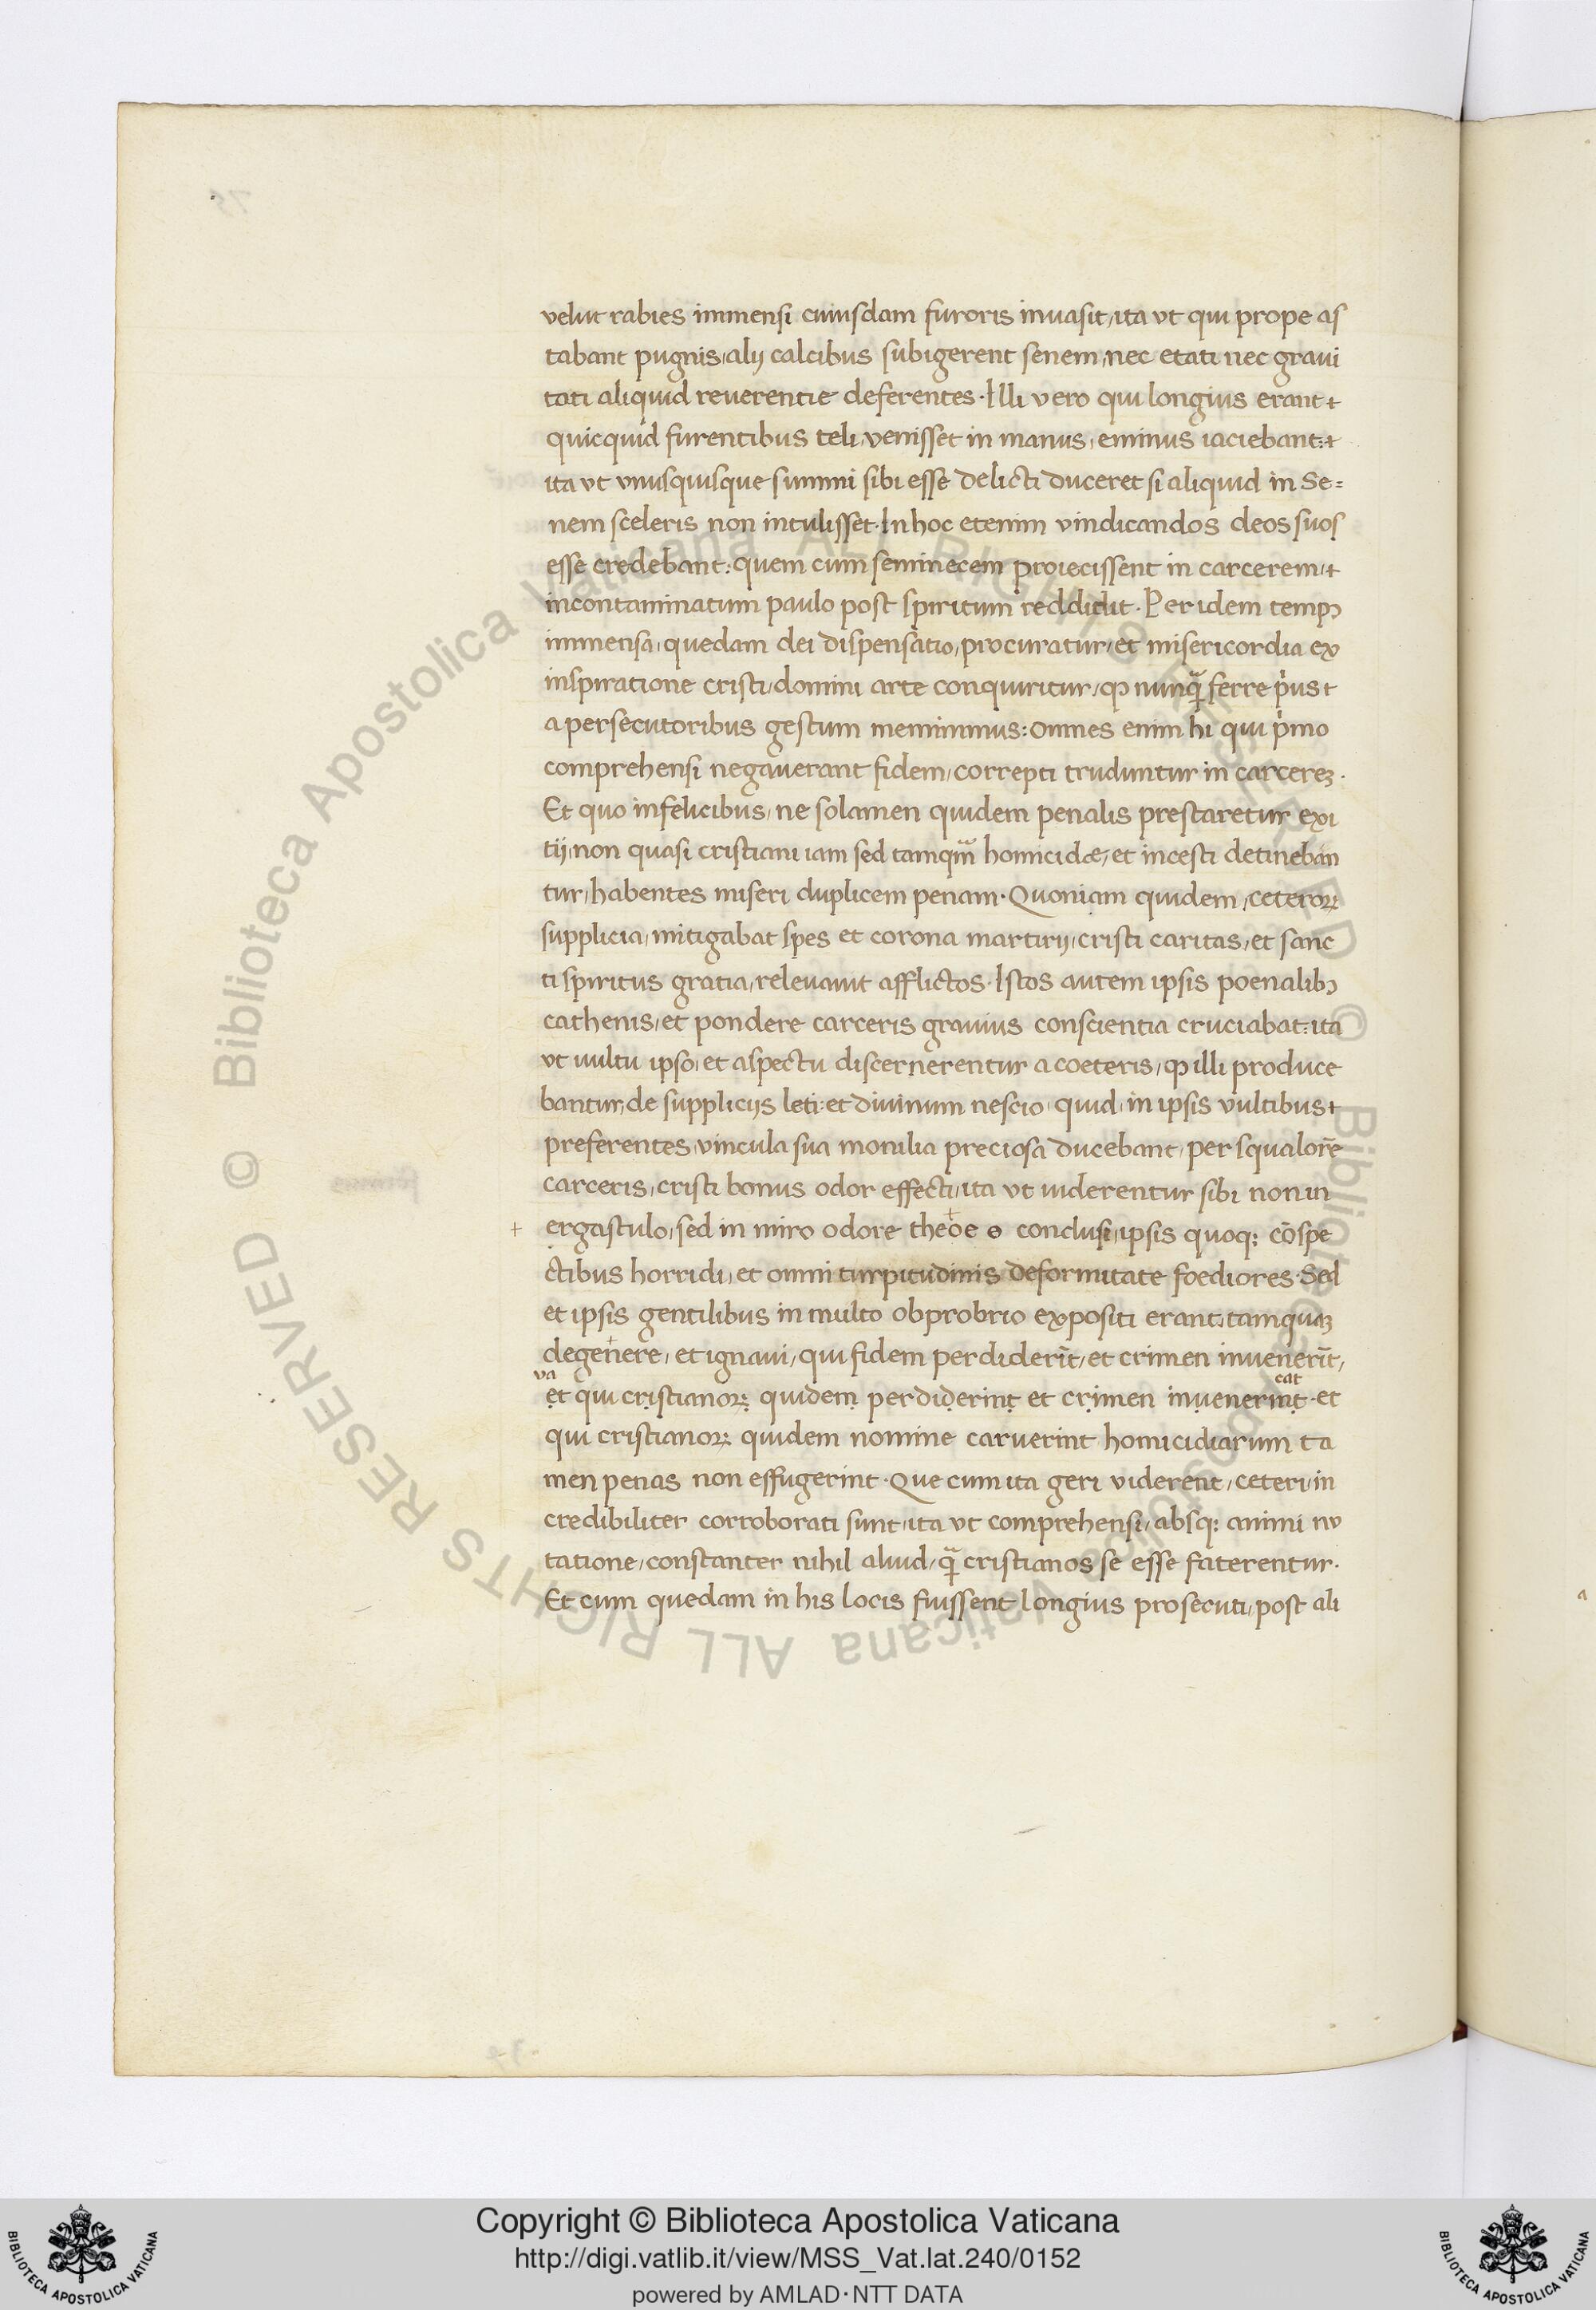 velut rabies immensi cuiusdam furoris inuasit, ita vt qui prope as
tabant pugnis, alij calcibus subigerent senem, nec etati nec graui
tati aliquid reuerentie deferentes. Illi vero qui longius erant
quicquid furentibus teli, venisset in manus, eminus iaciebant:
ita vt vnusquisque summi sibi esse delicti duceret si aliquid in Se=
nem sceleris non intulisset. In hoc etenim vindicandos deos suos
esse credebant: quem cum seminecem proiecissent in carcerem,
incontaminatum paulo post spiritum reddidit. Per idem tempꝰ
immensa, quedam dei dispensatio, procuratur, et misericordia ex
inspiratione cristi, domini arte conquiritur, ꝙ nunqᷓ ferre pͥus
a persecutoribus gestum meminimus: omnes enim hi qui pͥmo
comprehensi negauerant fidem, correpti truduntur in carcereꝫ.
Et quo infelicibus, ne solamen quidem penalis prestaretur exi
tij, non quasi cristiani iam sed tamqm̄ homicidæ, et incesti detineban
tur, habentes miseri duplicem penam. Quoniam quidem, ceteroꝝ
supplicia, mitigabat spes et corona martirij, cristi caritas, et sanc
ti spiritus gratia, releuauit afflictos. Istos autem ipsis poenalibꝰ
cathenis, et pondere carceris grauius conscientia cruciabat: ita
vt uultu ipso, et aspectu discernerentur a coeteris, ꝙ illi produce
bantur, de supplicijs leti: et diuinum nescio, quid, in ipsis vultibus
preferentes, vincula sua monilia preciosa ducebant, per squalorē
carceris, cristi bonus odor effecti, ita vt uiderentur sibi non in
+ ergastulo, sed in miro odore theoe o conclusi, ipsis quoqꝫ cōspe
ctibus horridi, et omni turpitudinis deformitate foediores. Sed
et ipsis gentilibus in multo obprobrio expositi erant, tamquaꝫ
degenere, et ignaui, qui fidem perdiderīt, et crimen inuenerīt,
va cat
et qui cristianoꝝ quidem perdiderint et crimen inuenerint. et
qui cristianoꝝ quidem nomine caruerint homicidiarum ta
men penas non effugerint. Que cum ita geri viderent, ceteri, in
credibiliter corroborati sunt, ita vt comprehensi, absqꝫ animi nu
tatione, constanter nihil aliud, qᷓ cristianos se esse faterentur.
Et cum quedam in his locis fuissent longius prosecuti, post ali
Copyright © Biblioteca Apostolica Vaticana
http://digi.vatlib.it/view/MSS_Vat.lat.240/0152
powered by AMLAD · NTT DATA
BIBLIOTECA APOSTOLICA VATICANA
BIBLIOTECA APOSTOLICA VATICANA
© Biblioteca Apostolica Vaticana ALL RIGHTS RESERVED © Biblioteca Apostolica Vaticana ALL RIGHTS RESERVED